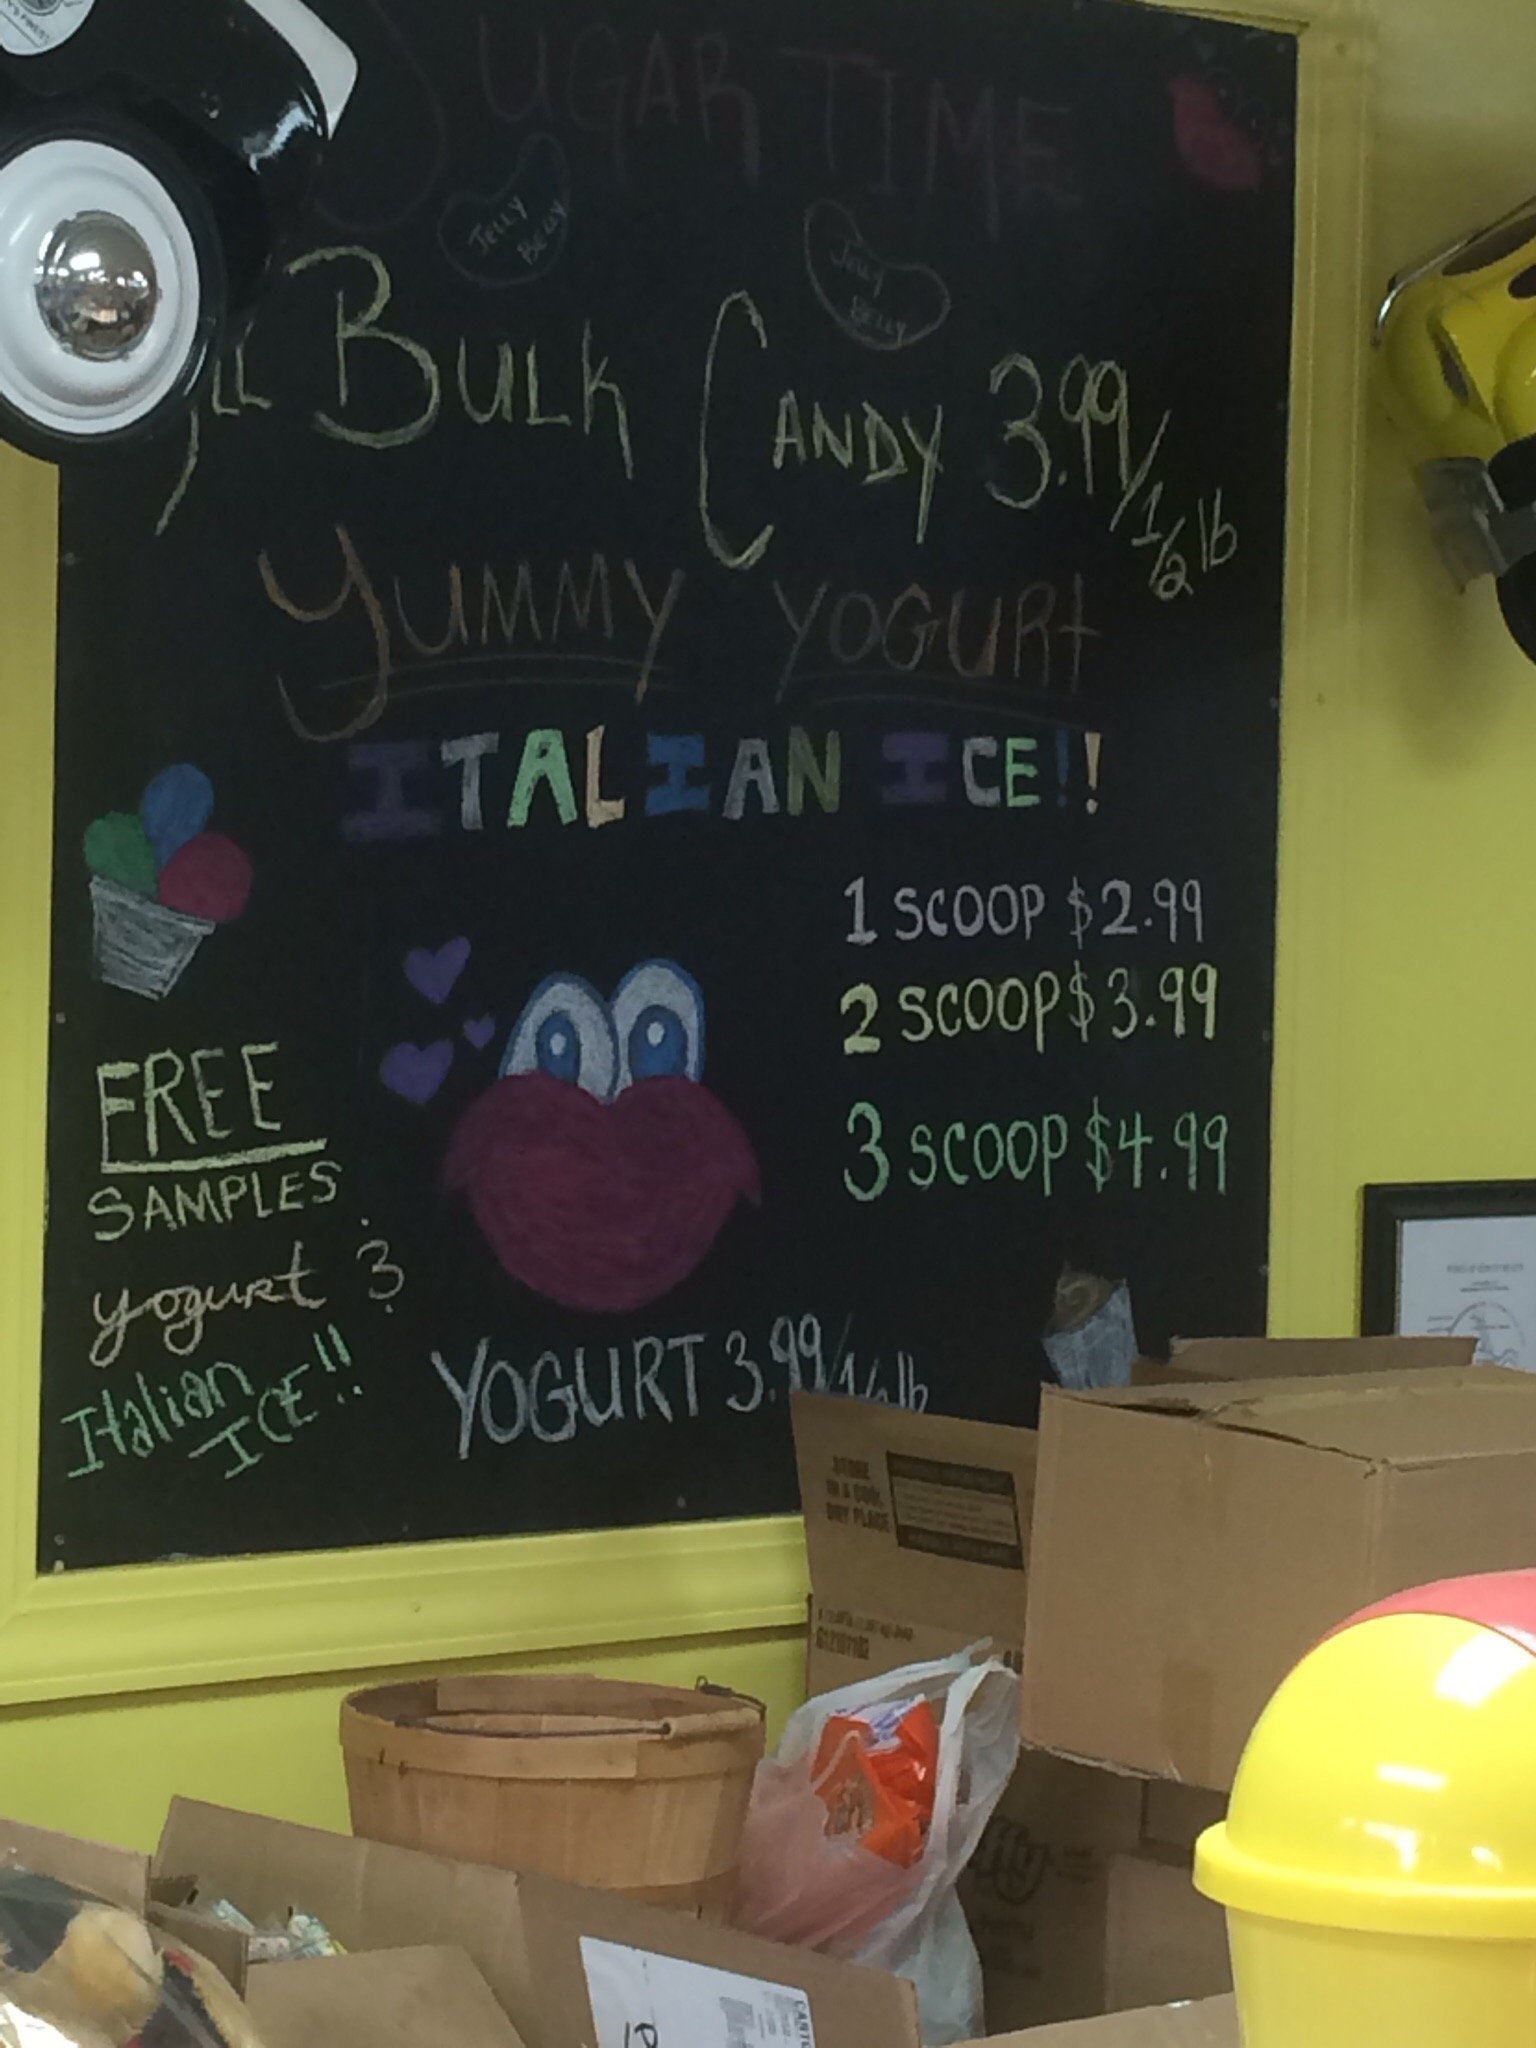 SUGAR TIME
JELLY BELLY
JELLY BELLY
ALL BULK CANDY 3.99/1/2 lb
YUMMY YOGURT
ITALIAN ICE!!
1 SCOOP $2.99
2 SCOOP $3.99
3 SCOOP $4.99
FREE
SAMPLES
yogurt &
Italian
ICE!!
YOGURT 3.99/1/2 lb
STORE
IN A COOL
DRY PLACE